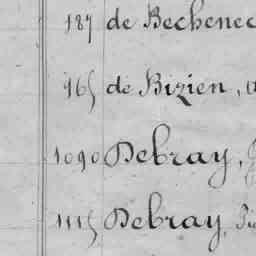 187 de Bechenec
965 de Bizien,
1090 Debray,
1115 Debray,